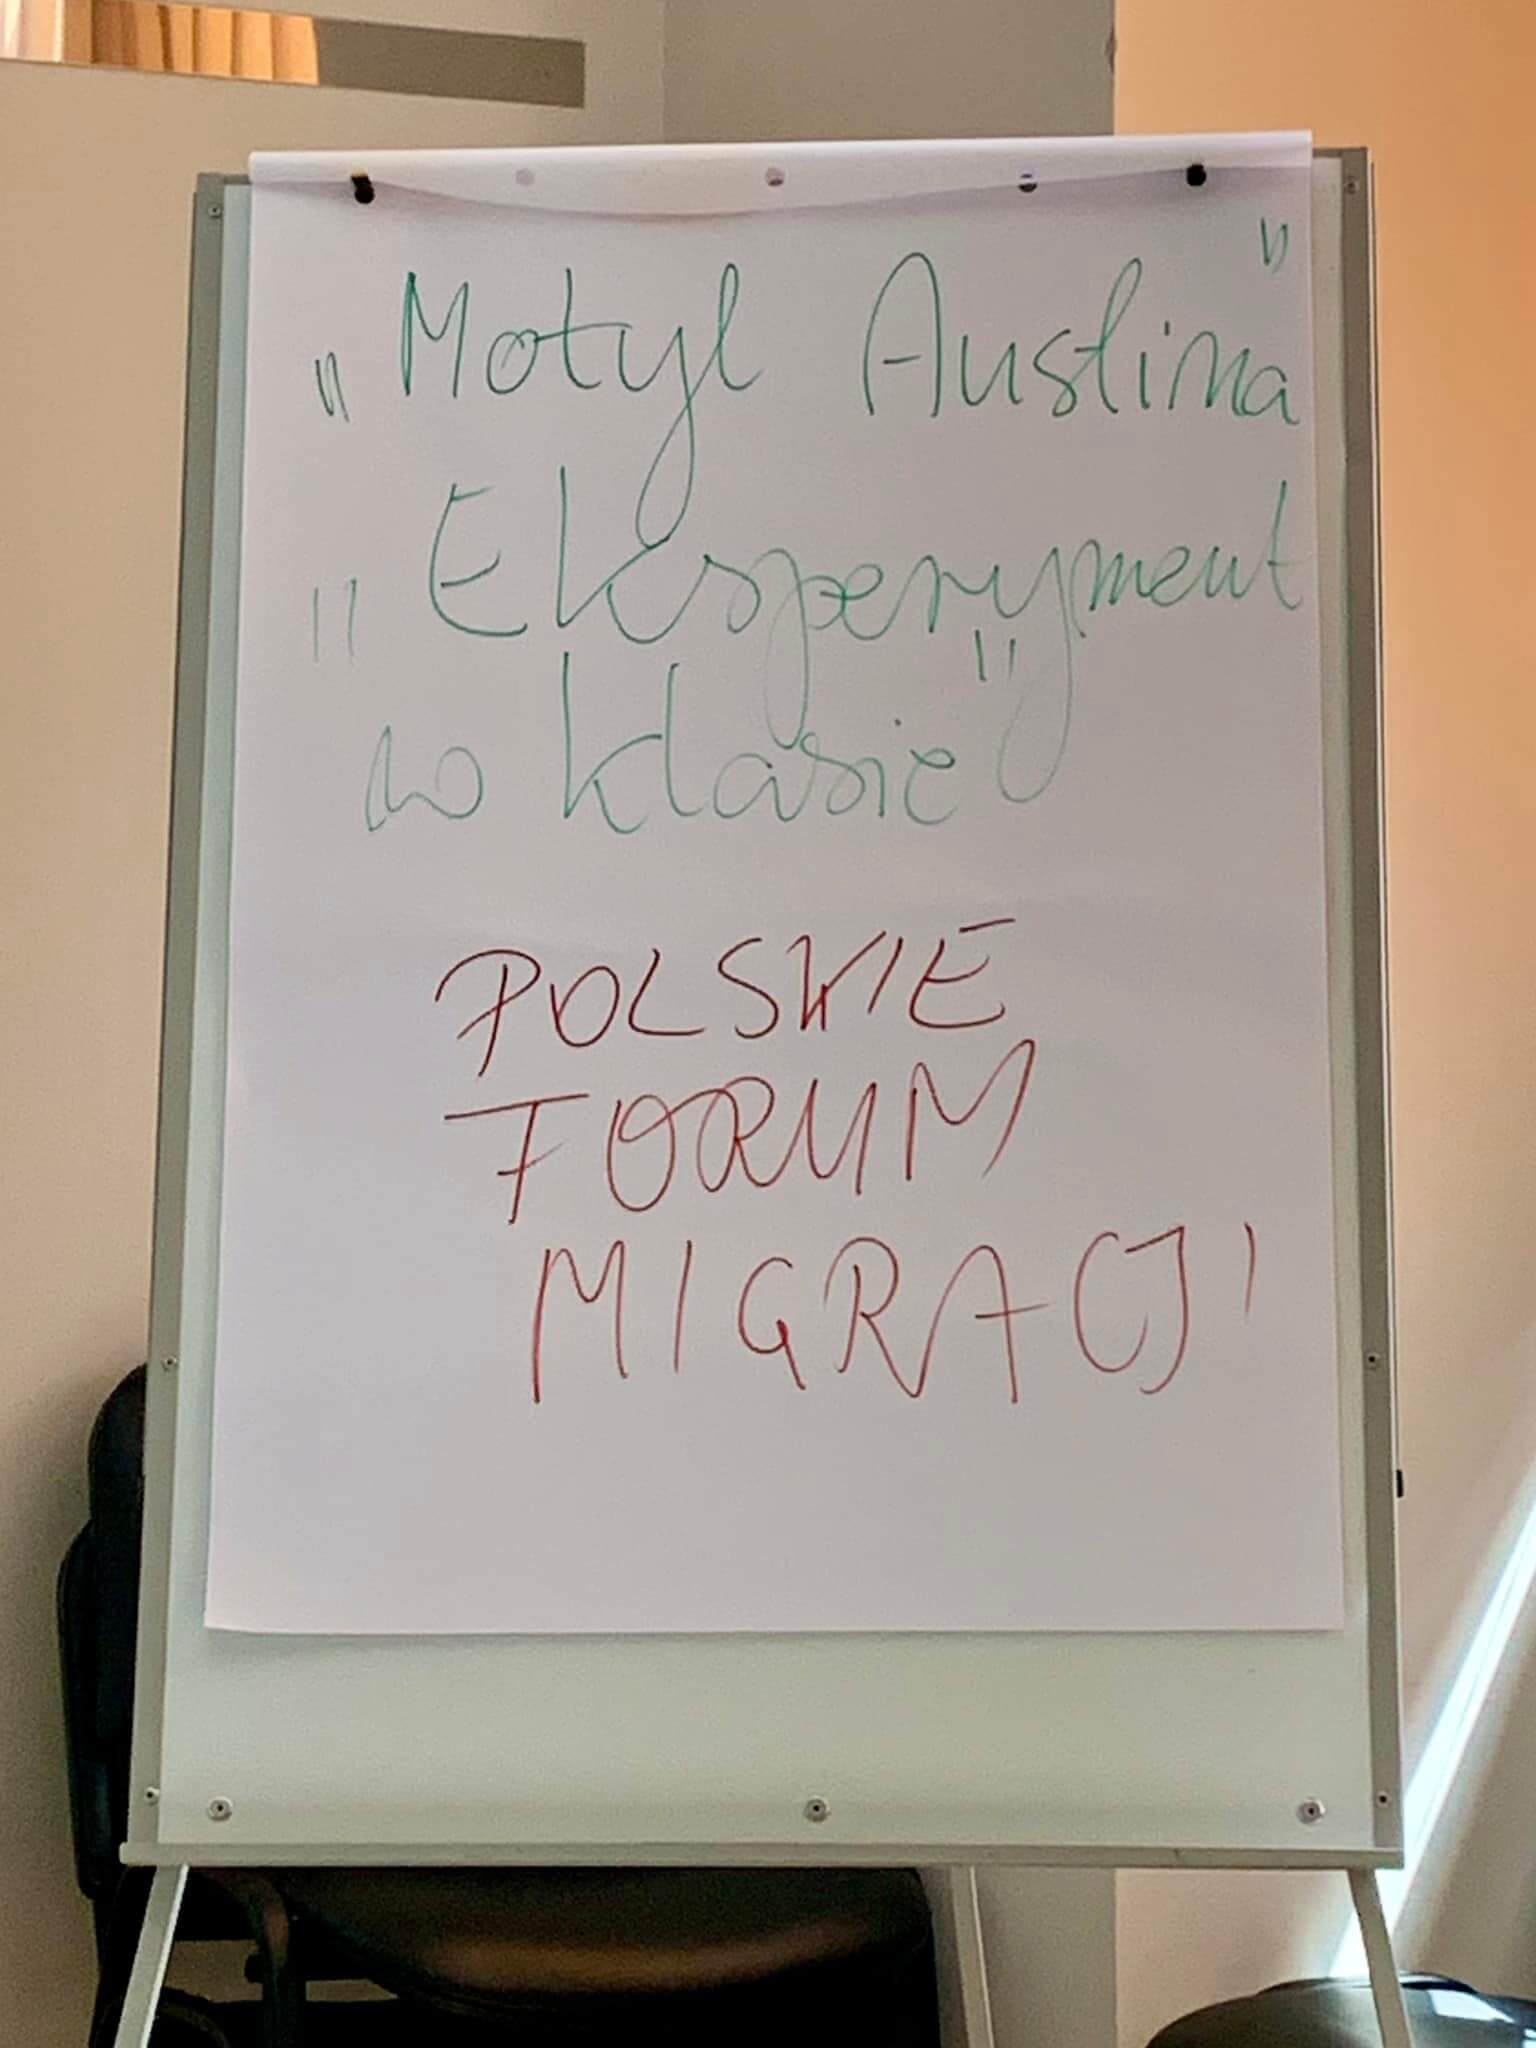 „Motyl Austina”
„Eksperyment
w klasie”
POLSKIE
FORUM
MIGRACJI